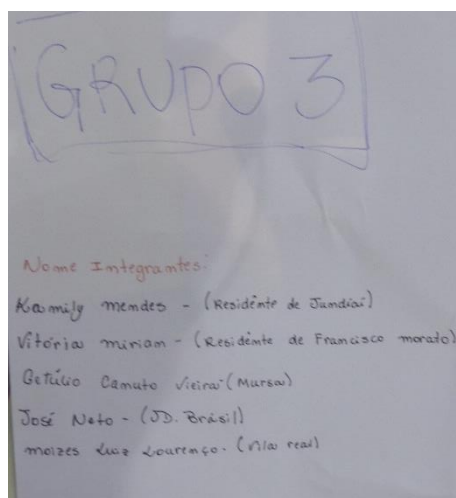 GRUPO 3
Nome Integrantes:
Kamily mendes - (Residênte de Jundiaí)
Vitória miriam - (Residênte de Francisco morato)
Getúlio Camuto Vieira (Mursa)
José Neto - (JD. Brásil)
moizes Luiz Lourenço. (vila real)